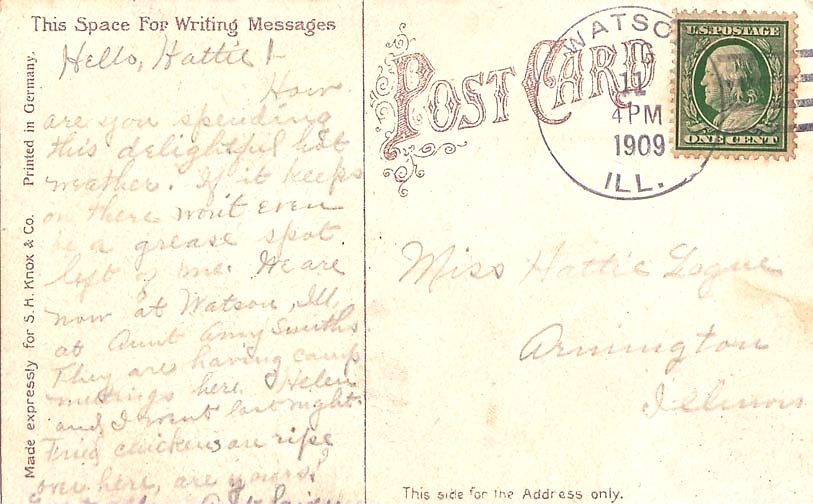 This Space For Writing Messages
Hello, Hattie!
How
are you spending
this delightful hot
weather. If it keeps
on there won't even
be a grease spot
left of me. We are
now at Watson, Ill,
at Aunt Amy Smiths
They are having camp
meetings here. Helen
and I went last night.
Fried chickens are ripe
over here, are yours?
Printed in Germany.
Made expressly for S. H. Knox & Co.
POST CARD
WATSO
11
4 PM
1909
ILL.
U.S. POSTAGE
ONE CENT
Miss Hattie Logue
Armington
Illinois
This side for the Address only.